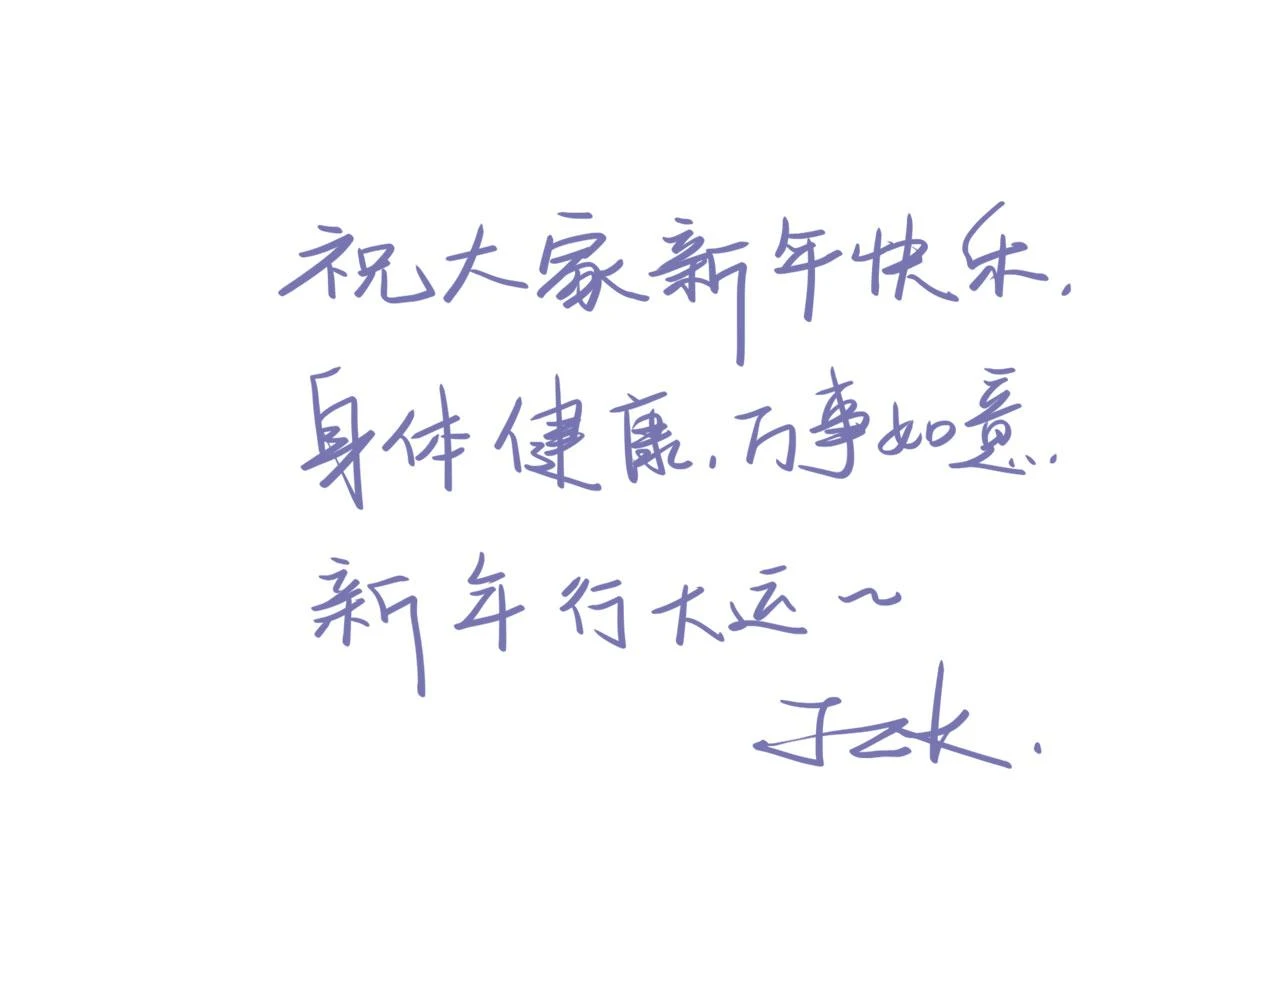 祝大家新年快乐.
身体健康.万事如意.
新年行大运~
Jzk.